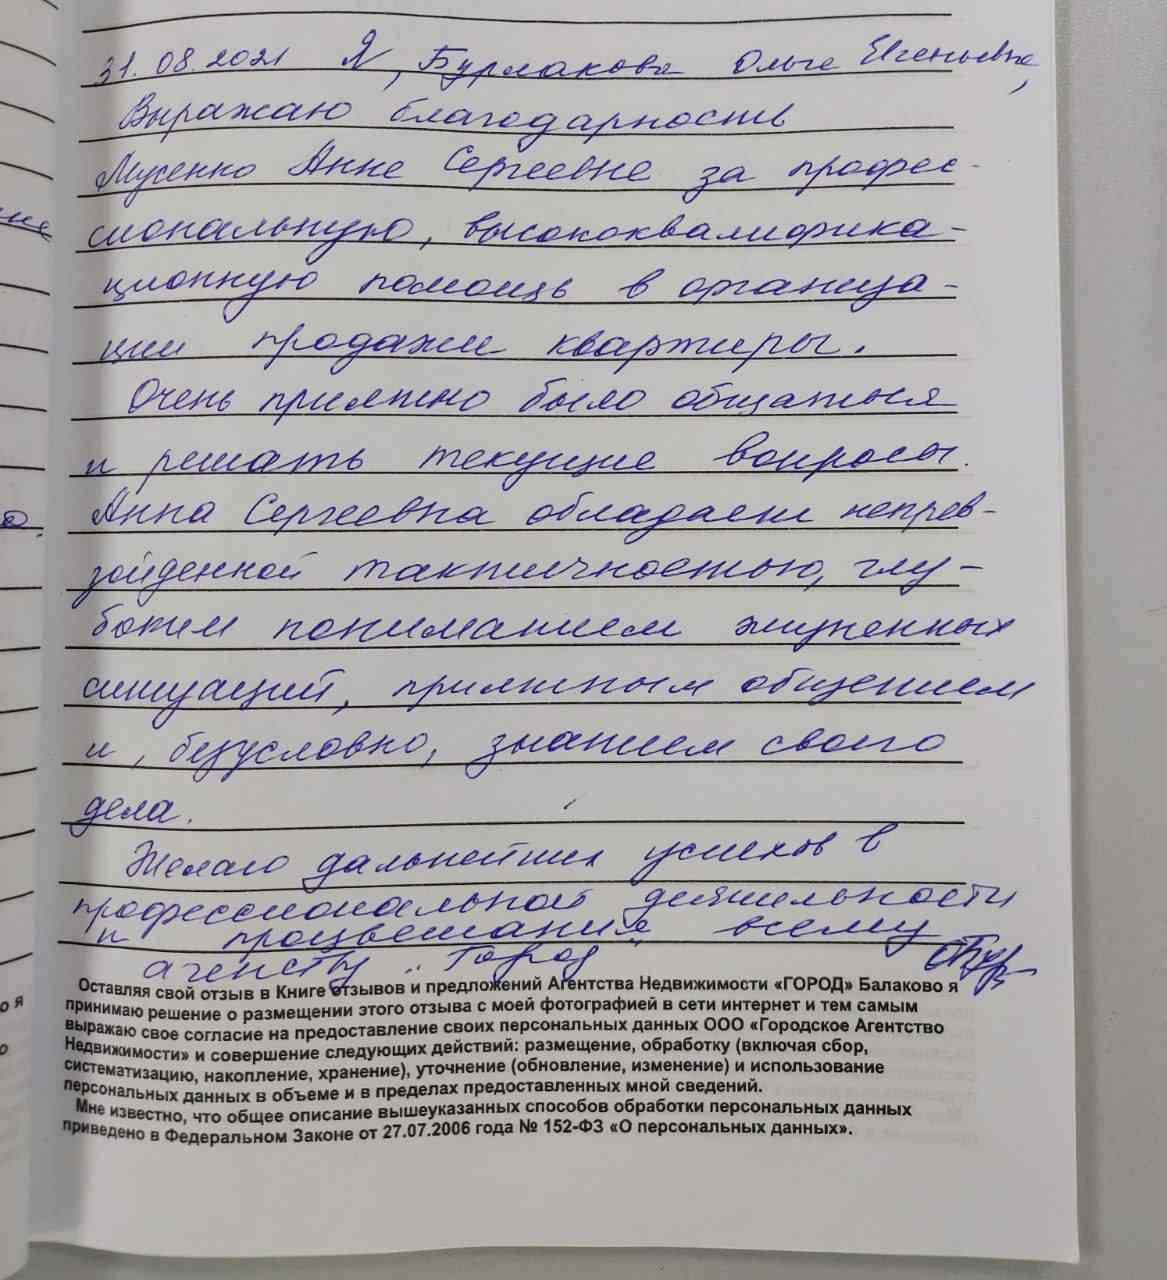 31.08.2021 Я, Бурлакова Ольга Евгеньевна,
Выражаю благодарность
Мусенко Анне Сергеевне за профес-
сиональную, высококвалифика-
ционную помощь в организа-
ции продажи квартиры.
Очень приятно было общаться
и решать текущие вопросы.
Анна Сергеевна обладает непрев-
зойденной тактичностью, глу-
боким пониманием жизненных
ситуаций, приятным общением
и, безусловно, знанием своего
дела.
Желаю дальнейших успехов в
профессиональной деятельности
и процветания всему
агенству "Город"
Оставляя свой отзыв в Книге отзывов и предложений Агентства Недвижимости «ГОРОД» Балаково я
принимаю решение о размещении этого отзыва с моей фотографией в сети интернет и тем самым
выражаю свое согласие на предоставление своих персональных данных ООО «Городское Агентство
Недвижимости» и совершение следующих действий: размещение, обработку (включая сбор,
систематизацию, накопление, хранение), уточнение (обновление, изменение) и использование
персональных данных в объеме и в пределах предоставленных мной сведений.
Мне известно, что общее описание вышеуказанных способов обработки персональных данных
приведено в Федеральном Законе от 27.07.2006 года № 152-ФЗ «О персональных данных».